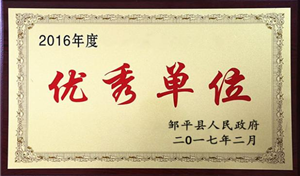 2016年度
优秀单位
邹平县人民政府
二〇一七年二月